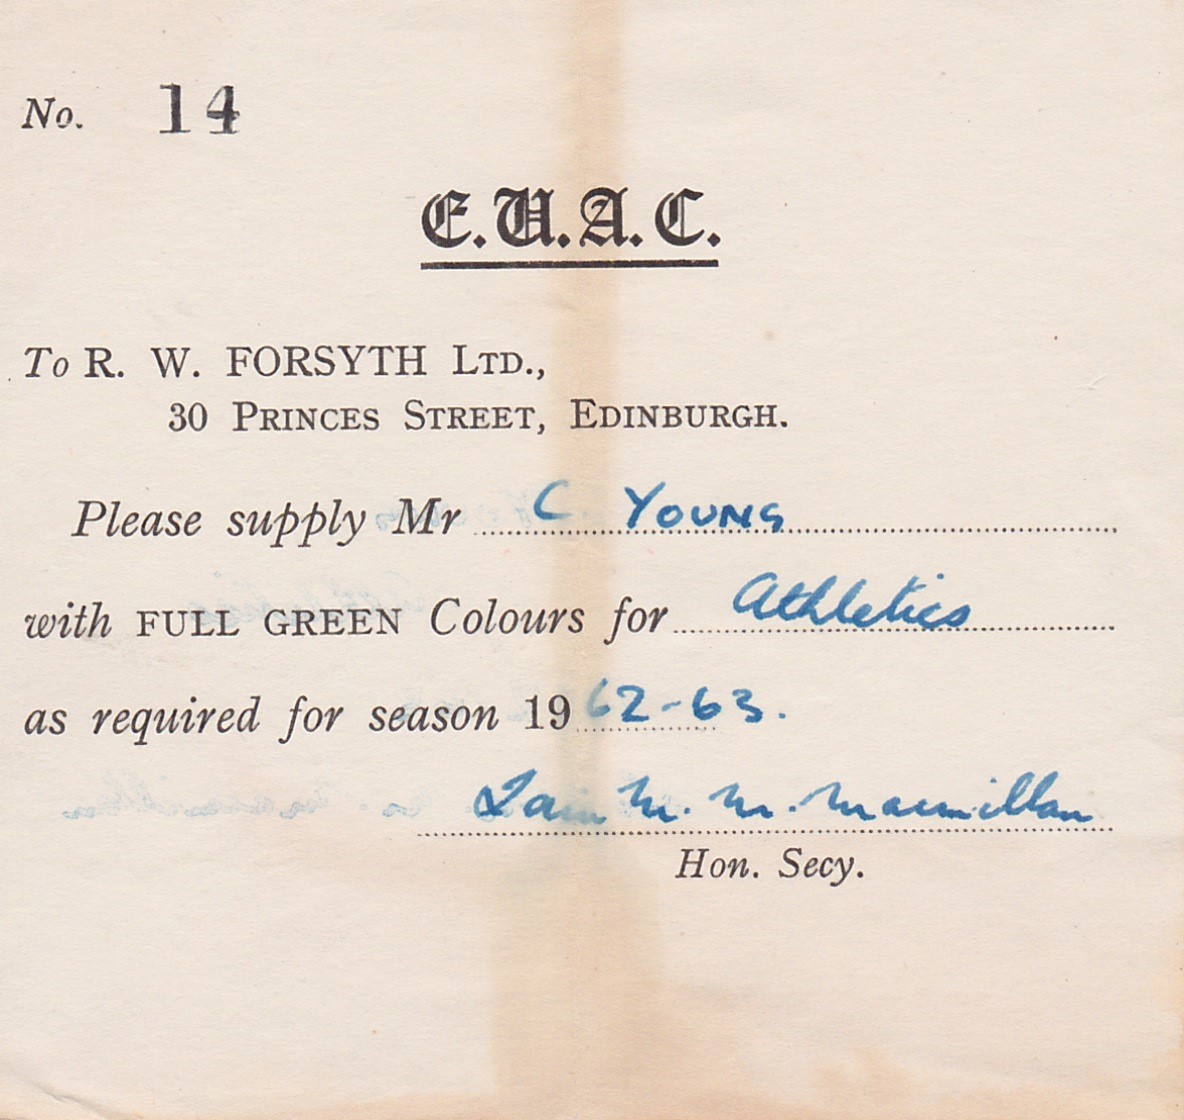 No. 14
E.U.A.C.
To R. W. FORSYTH LTD.,
30 PRINCES STREET, EDINBURGH.
Please supply Mr C YOUNG
with FULL GREEN Colours for Athletics
as required for season 1962-63.
Iain M. M. Macmillan
Hon. Secy.